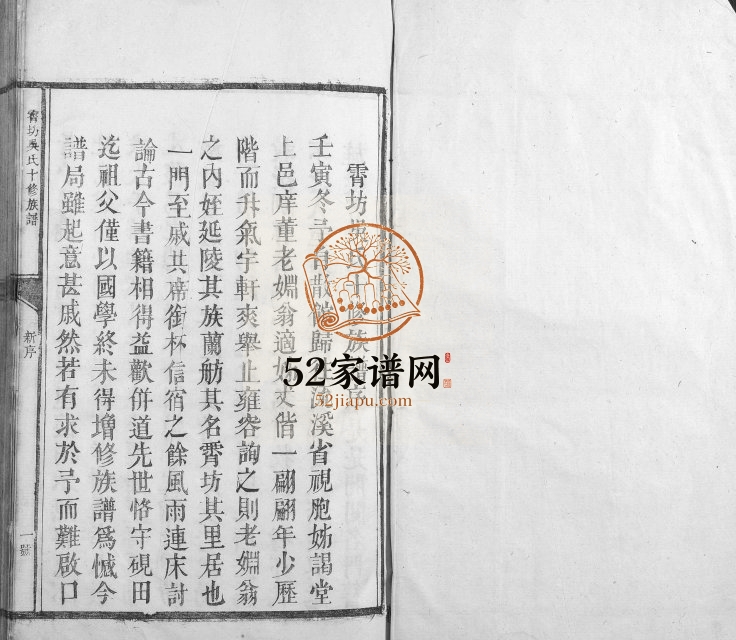 霄坊吳氏十修族譜序
壬寅冬予自散歸溪省視胞姊謁堂
上邑庠董老嫺翁適姊丈偕一翩翩年少歷
階而升氣宇軒爽舉止雍容詢之則老嫺翁
之內姪延陵其族蘭舫其名霄坊其里居也
一門至戚共席銜杯信宿之餘風雨連床討
論古今書籍相得益歡併道先世恪守硯田
迄祖父僅以國學終未得增修族譜爲憾今
譜局雖起意甚戚然若有求於予而難啟口
霄坊吳氏十修族譜
新序
一號
52家谱网
52jiapu.com